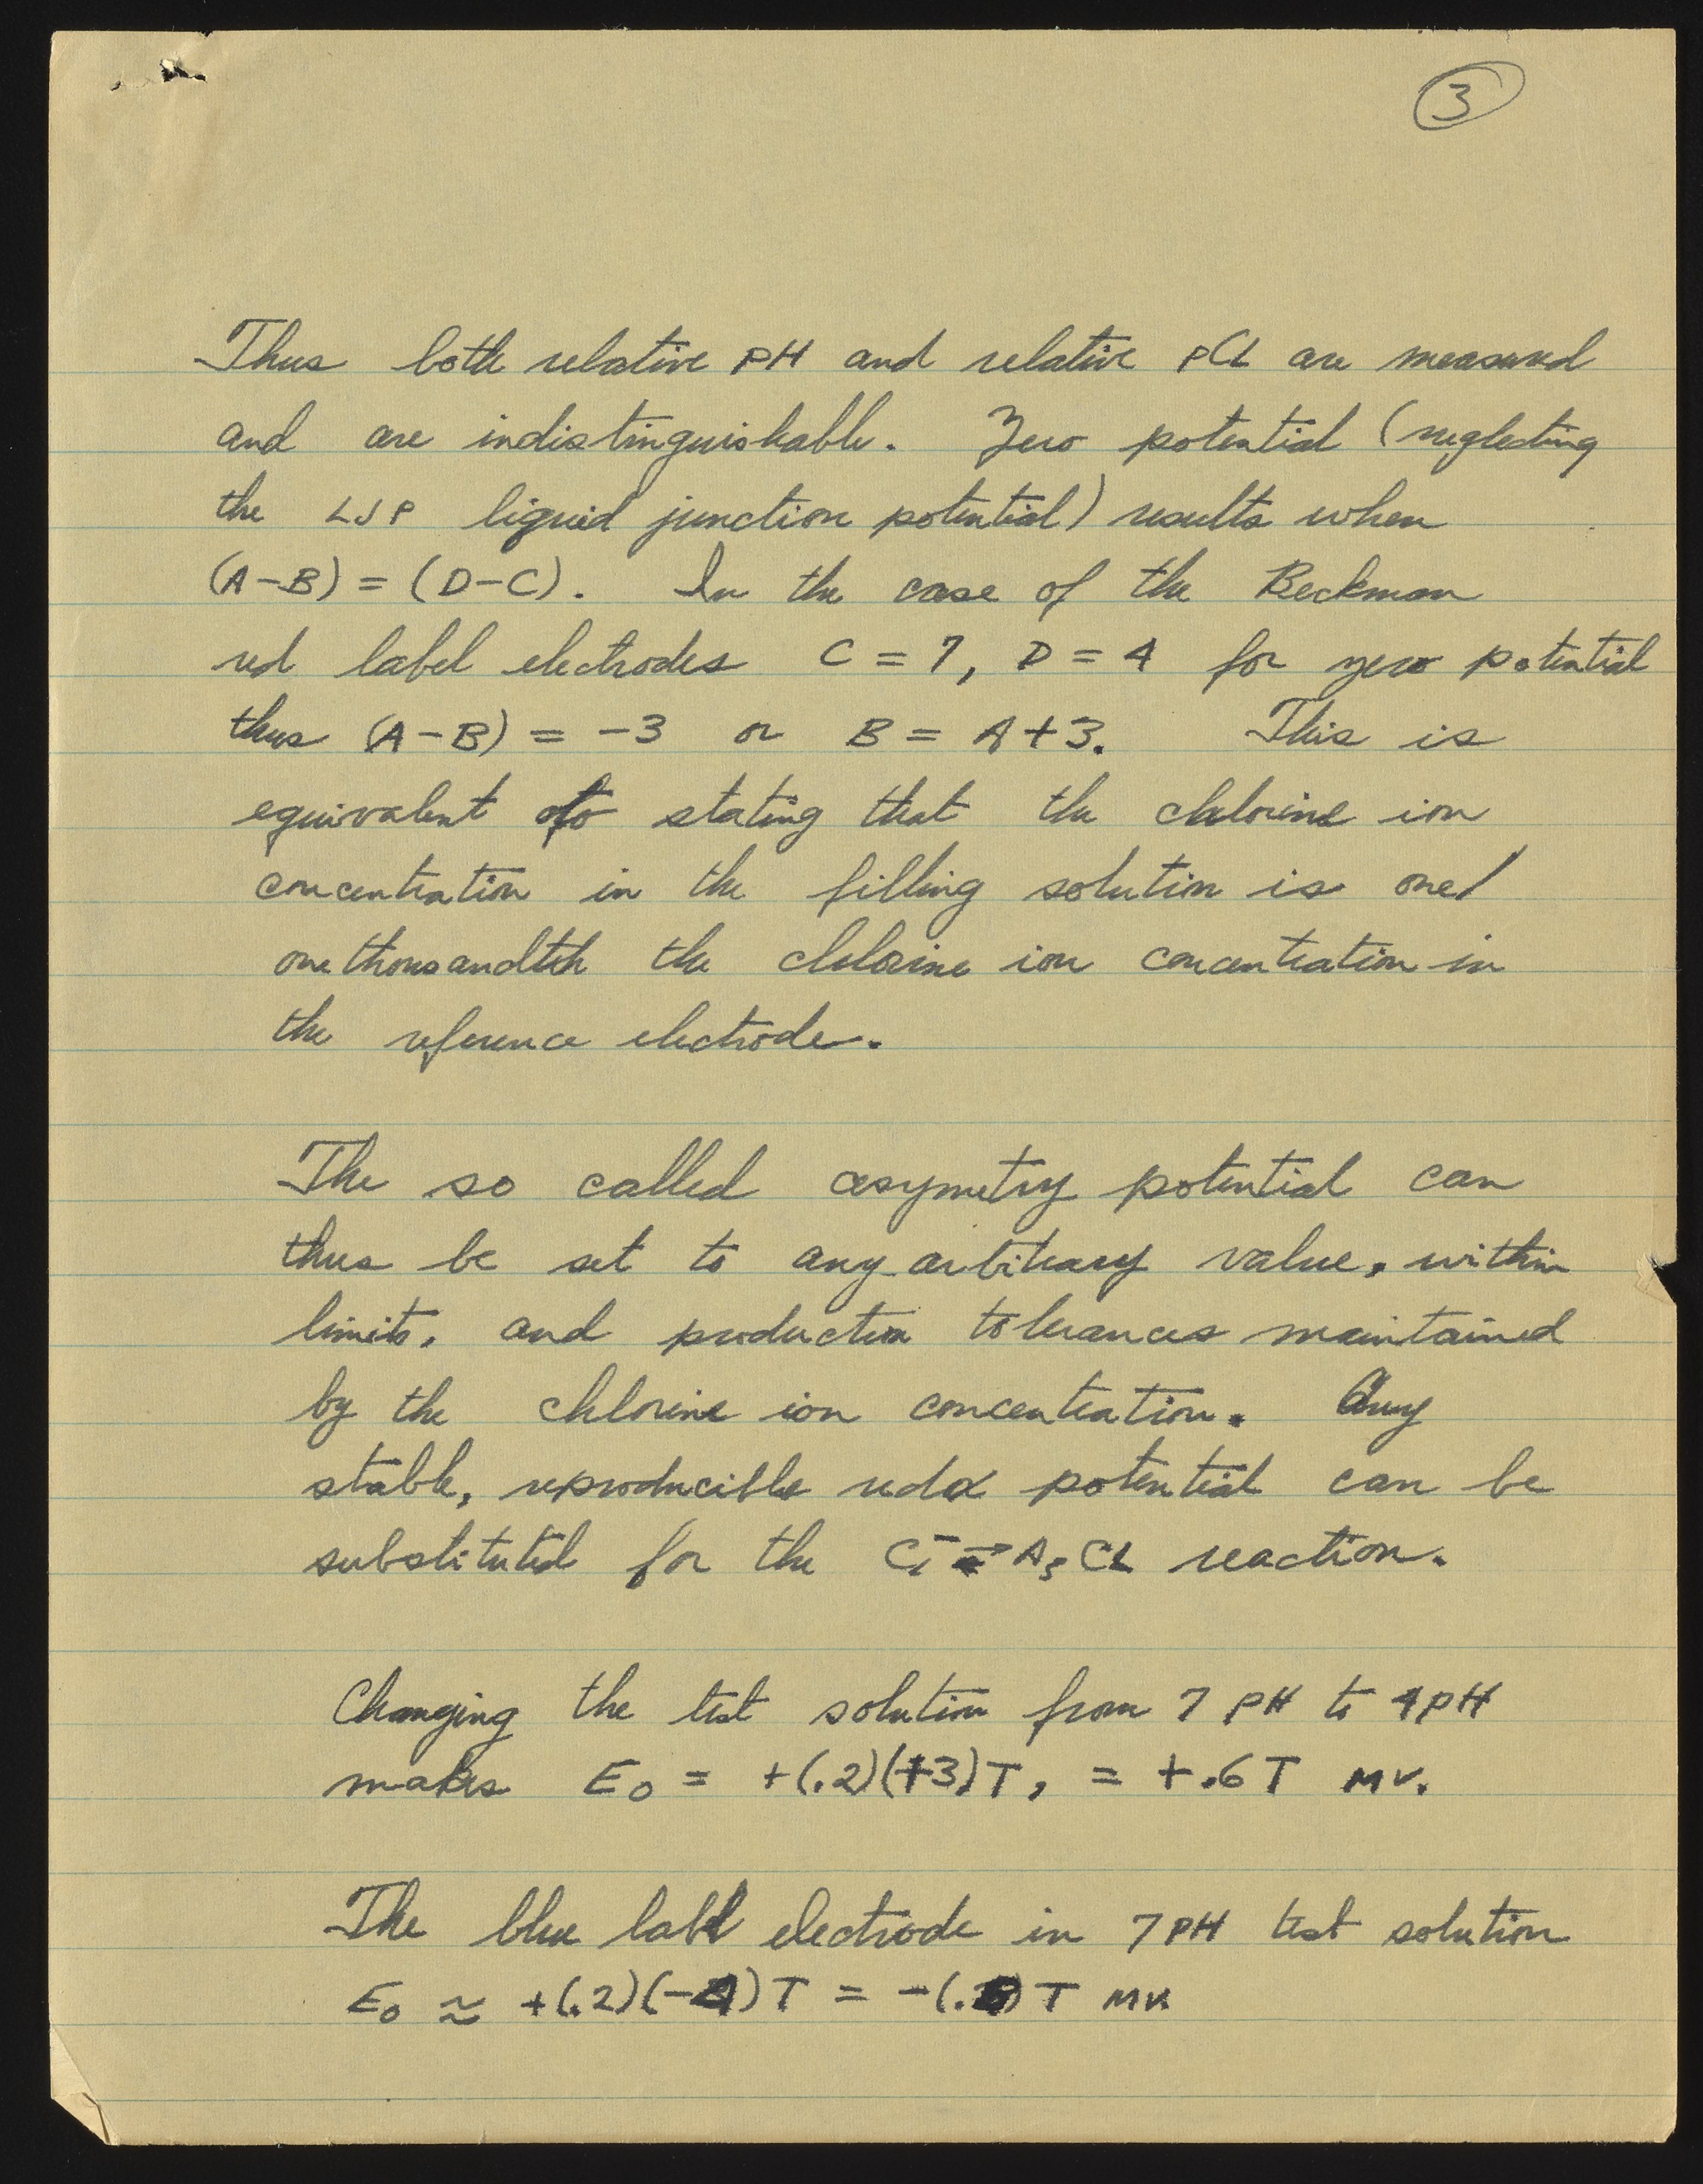 3
Thus both relative PH and relative PCL are measured
and are indistinguishable. Zero potential (neglecting
the LJP liquid junction potential) results when
(A-B) = (D-C). In the case of the Beckman
red label electrodes C = 7, D = 4 for zero potential
thus (A-B) = -3 or B = A+3. This is
equivalent to stating that the chlorine ion
concentration in the filling solution is one/
one thousandth the chlorine ion concentration in
the reference electrode.
The so called asymetry potential can
thus be set to any arbitrary value, within
limits, and production tolerances maintained
by the chlorine ion concentration. Any
stable, reproducible redox potential can be
substituted for the CL⁻ ⇌ AgCL reaction.
Changing the test solution from 7 PH to 4PH
makes E₀ = +(.2)(+3)T, = +.6T MV.
The blue label electrode in 7PH test solution
E₀ ≈ +(.2)(-4)T = -(.8)T MV